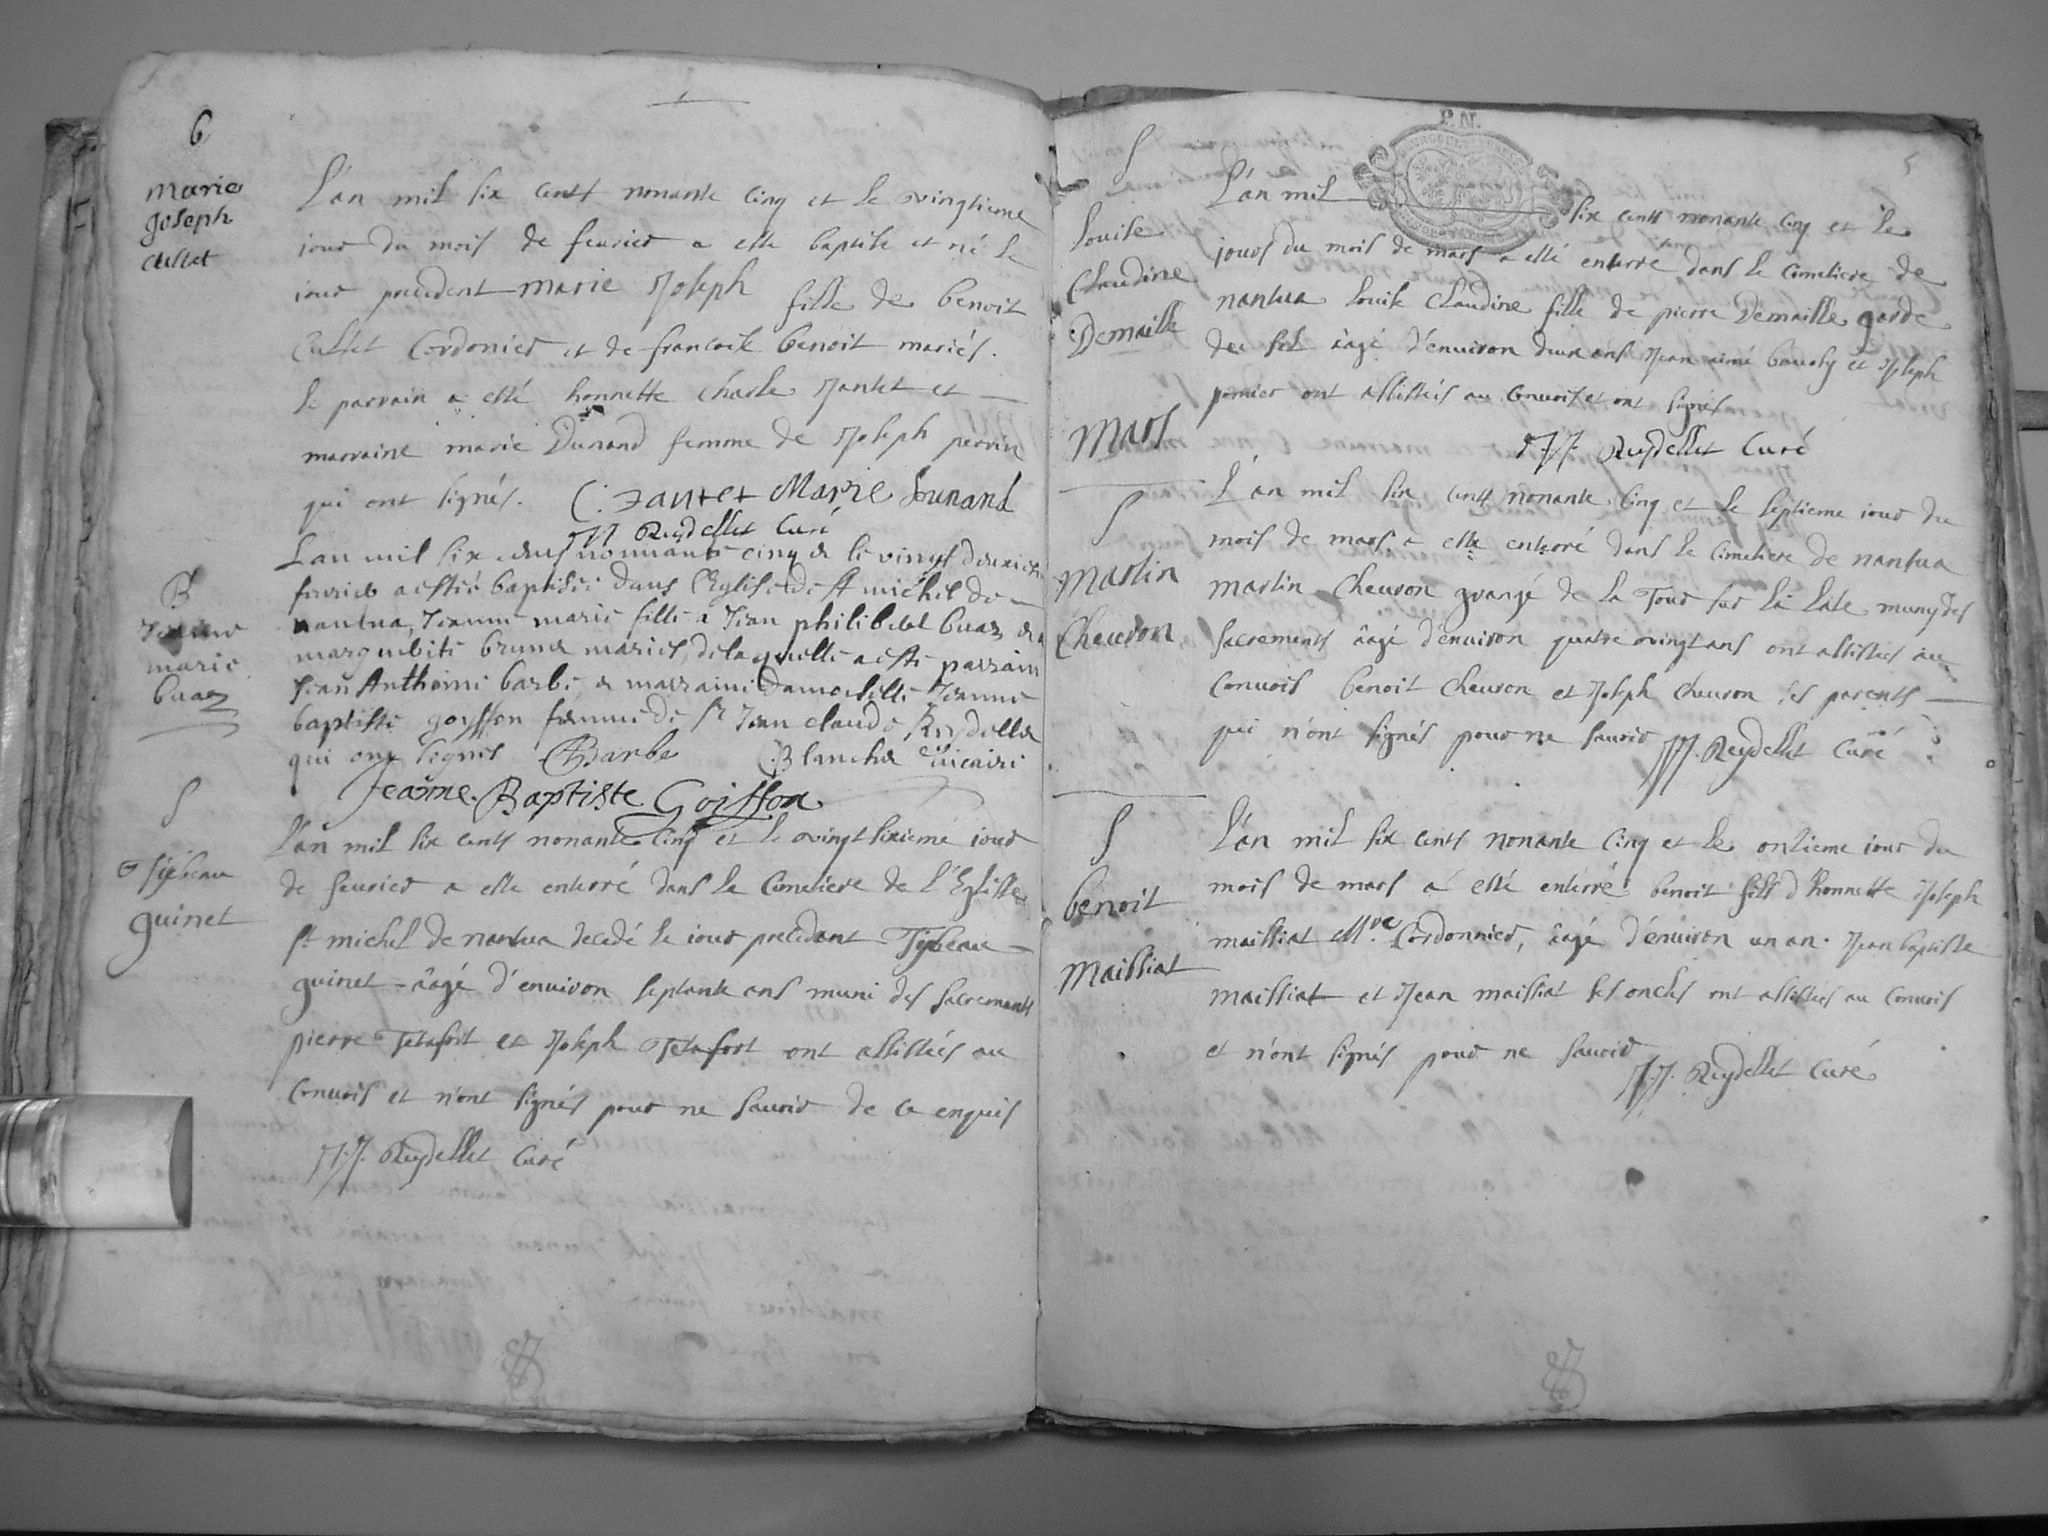 6
Marie
Joseph
Cultet
L'an mil six cents nonante cinq et le vingtieme
jour du mois de feurier a esté baptisée et né le
jour precedent marie Joseph fille de benoit
Cultet Cordonier et de francoise benoit mariés.
le parrain a esté honnette Charle Jantet et
marraine marie Dunand femme de Joseph perrin
qui ont signés. C. Jantet Marie dunand
JJ Reydellet Curé
B
Jeanne
marie
buaz
L'an mil six cents nonnante cinq & le vingt deuxie
feurier a esté baptisée dans l'Eglise de st michel de
nantua, Jeanne marie fille a Jean philibert buaz &
marguerite brunet mariés, de laquelle a esté parrain
Jean Anthoine barbe, & marraine damoiselle Jeanne
baptiste goyffon femme de sr Jean claude Reydellet
qui ont signés Barbe Blanchet vicaire
Jeanne Baptiste Goiffon
S
Tysbeau
guinet
L'an mil six cents nonante cinq et le vingt sixieme jour
de feurier a esté enterré dans le Cimetiere de l'Eglisse
st michel de nantua decedé le jour precedant Tysbeau
guinet âagé d'enuiron septante ans muni des sacremants
pierre Tetafort et Joseph Tetafort ont assistées au
Conuois et n'ont signés pour ne sauoir de ce enquis
J.J. Reydellet Curé
P.N.
5
S
Louise
Claudine
Demaille
L'an mil six cents nonante cinq et le
jours du mois de mars a esté enterré dans le Cimetiere de
nantua louise Claudine fille de pierre Demaille garde
du sel âagé d'enuiron deux ans Jean aimé et Joseph
ont assistés au Conuois et ont signés
J.J. Reydellet Curé
Mars
S
Martin
Cheuron
L'an mil six cents nonante cinq et le septieme jour du
mois de mars a esté enterré dans le Cimetiere de nantua
martin Cheuron grangé de la Tour sur la muny des
sacrements âagé d'enuiron quatre vingt ans ont assistées au
Conuois benoit Cheuron et Joseph Cheuron ses parents
qui n'ont signés pour ne sauoir JJ. Reydellet Curé
S
benoit
Maissiat
L'an mil six cents nonante cinq et le onzieme jour du
mois de mars a esté enterré benoit fils d'honnette Joseph
maissiat Mre. Cordonnier, âagé d'enuiron un an. Jean baptiste
maissiat et Jean maissiat ses oncles ont assistées au Conuois
et n'ont signés pour ne sauoir
J.J. Reydellet Curé